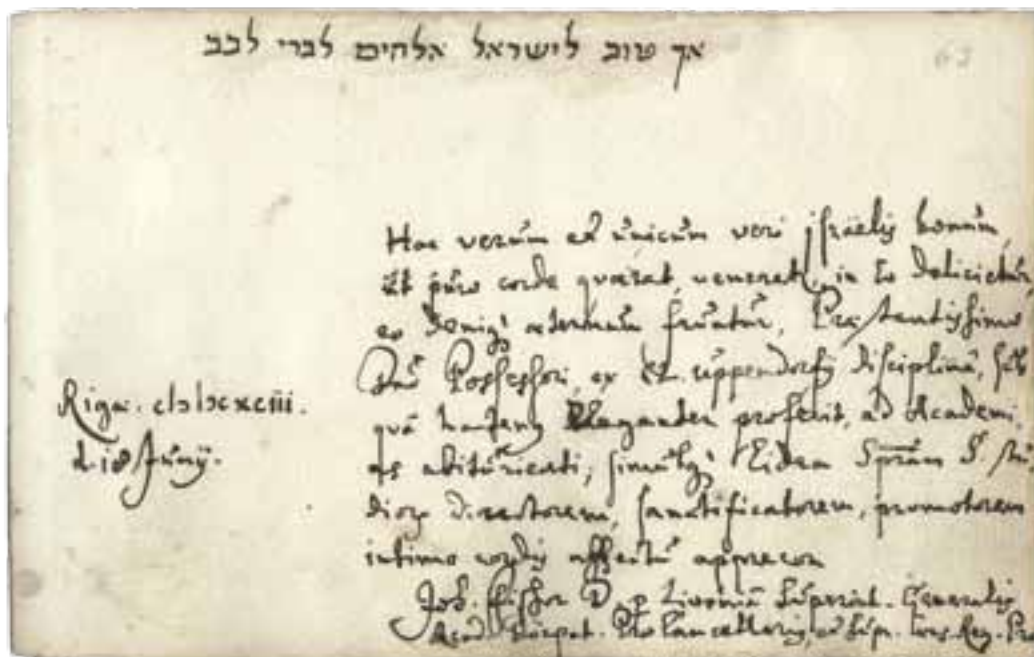 אך טוב לישראל אלהים לברי לבב
63
Hoc verum et unicum veri jsräelis bonum,
ut puro corde quærat, veneretur, in eo delicietur,
eo æternum fruatur, Præstantissimo
Possessori, ex Cl. uppendorfij disciplinâ, sub
quâ hactenus Eleganter profecit, ad Academi,
as abituricnti, simulq; Eidem Sp̃rum S. stu
directorem, sanctificatorem, promotorem
intimo cordis affectu apprecor
Joh. Fischer D. p Livoniam Superint. Generalis
Acad. Dorpat. ProCancellarius,
Rigæ. cIↃ IↃc xciii.
d. 18 Junij.